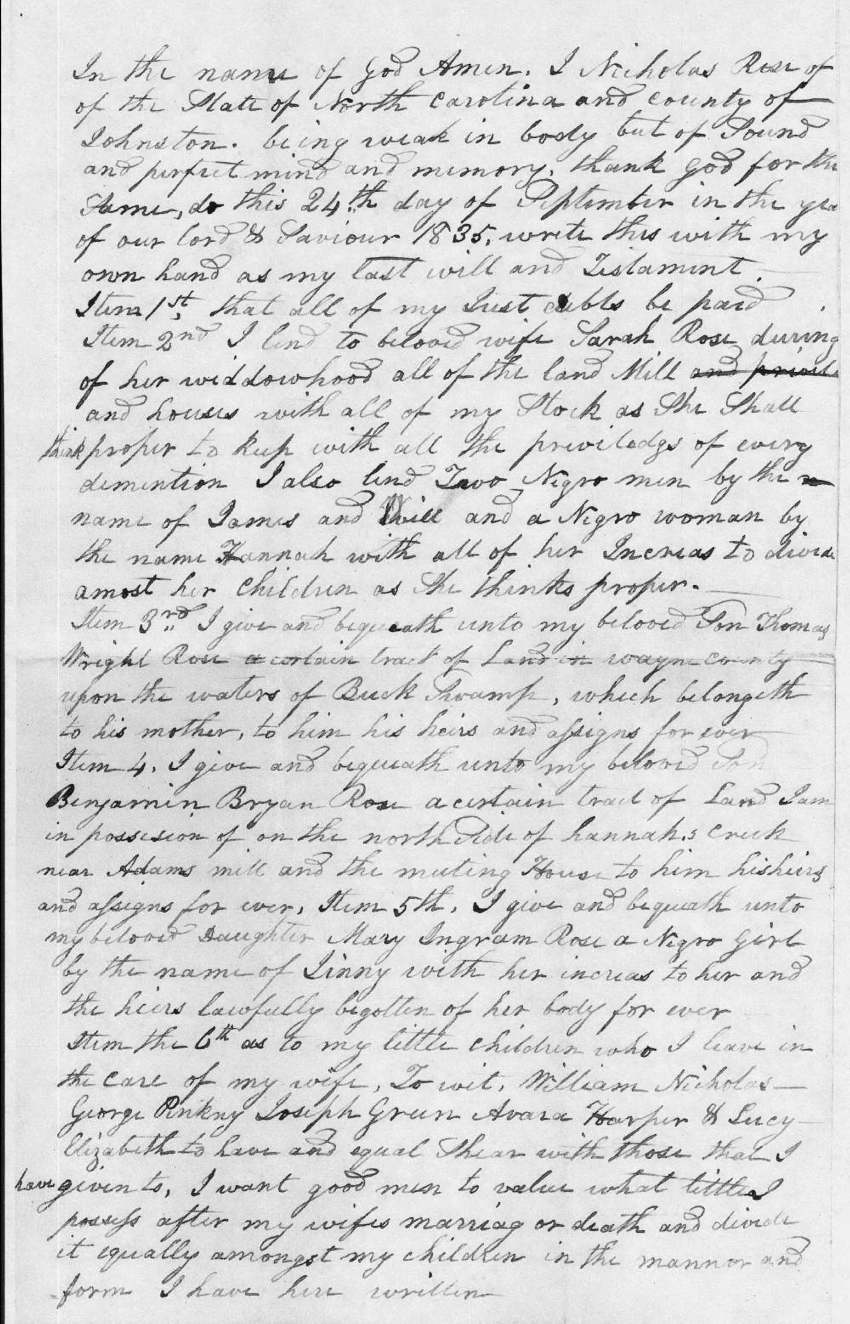 In the name of God Amen. I Nicholas Rose of
of the State of North Carolina and county of
Johnston. being weak in body but of Sound
and perfect mind and memory, thank God for the
Same, do this 24th day of September in the yea
of our lord & Saviour 1835, write this with my
own hand as my last will and Testament.
Item 1st, that all of my Just debts be paid
Item 2nd I lend to beloved wife Sarah Rose during
of her widdowhood all of the land Mill and privile
and houses with all of my Stock as She Shall
think proper to keep with all the priviledgs of every
demention I also lend Two Negro men by the
name of James and Will and a Negro woman by
the name Hannah with all of her Increas to divide
amost her children as She thinks proper.
Item 3rd I give and bequeath unto my beloved Son Thomas
Wright Rose a certain tract of Land in wayne county
upon the waters of Buck Swamp, which belongeth
to his mother, to him his heirs and assigns for ever
Item 4. I give and bequeath unto my beloved Son
Benjamin Bryan Rose a certain tract of Land I am
in possesion of on the north Side of hannahs creek
near Adams mill and the meeting House to him his heirs
and assigns for ever, Item 5th. I give and bequath unto
my beloved Daughter Mary Ingram Rose a Negro Girl
by the name of Jinny with her increas to her and
the heirs lawfully begotten of her body for ever
Item the 6th as to my little children who I leave in
the care of my wife, To wit, William Nicholas
George Pinkny Joseph Green Avara Harper & Lucy
Elizabeth to have and equal Shear with those that I
have given to, I want good men to value what little I
possess after my wifes marriag or death and divide
it equally amongst my children in the mannor and
form I have here written